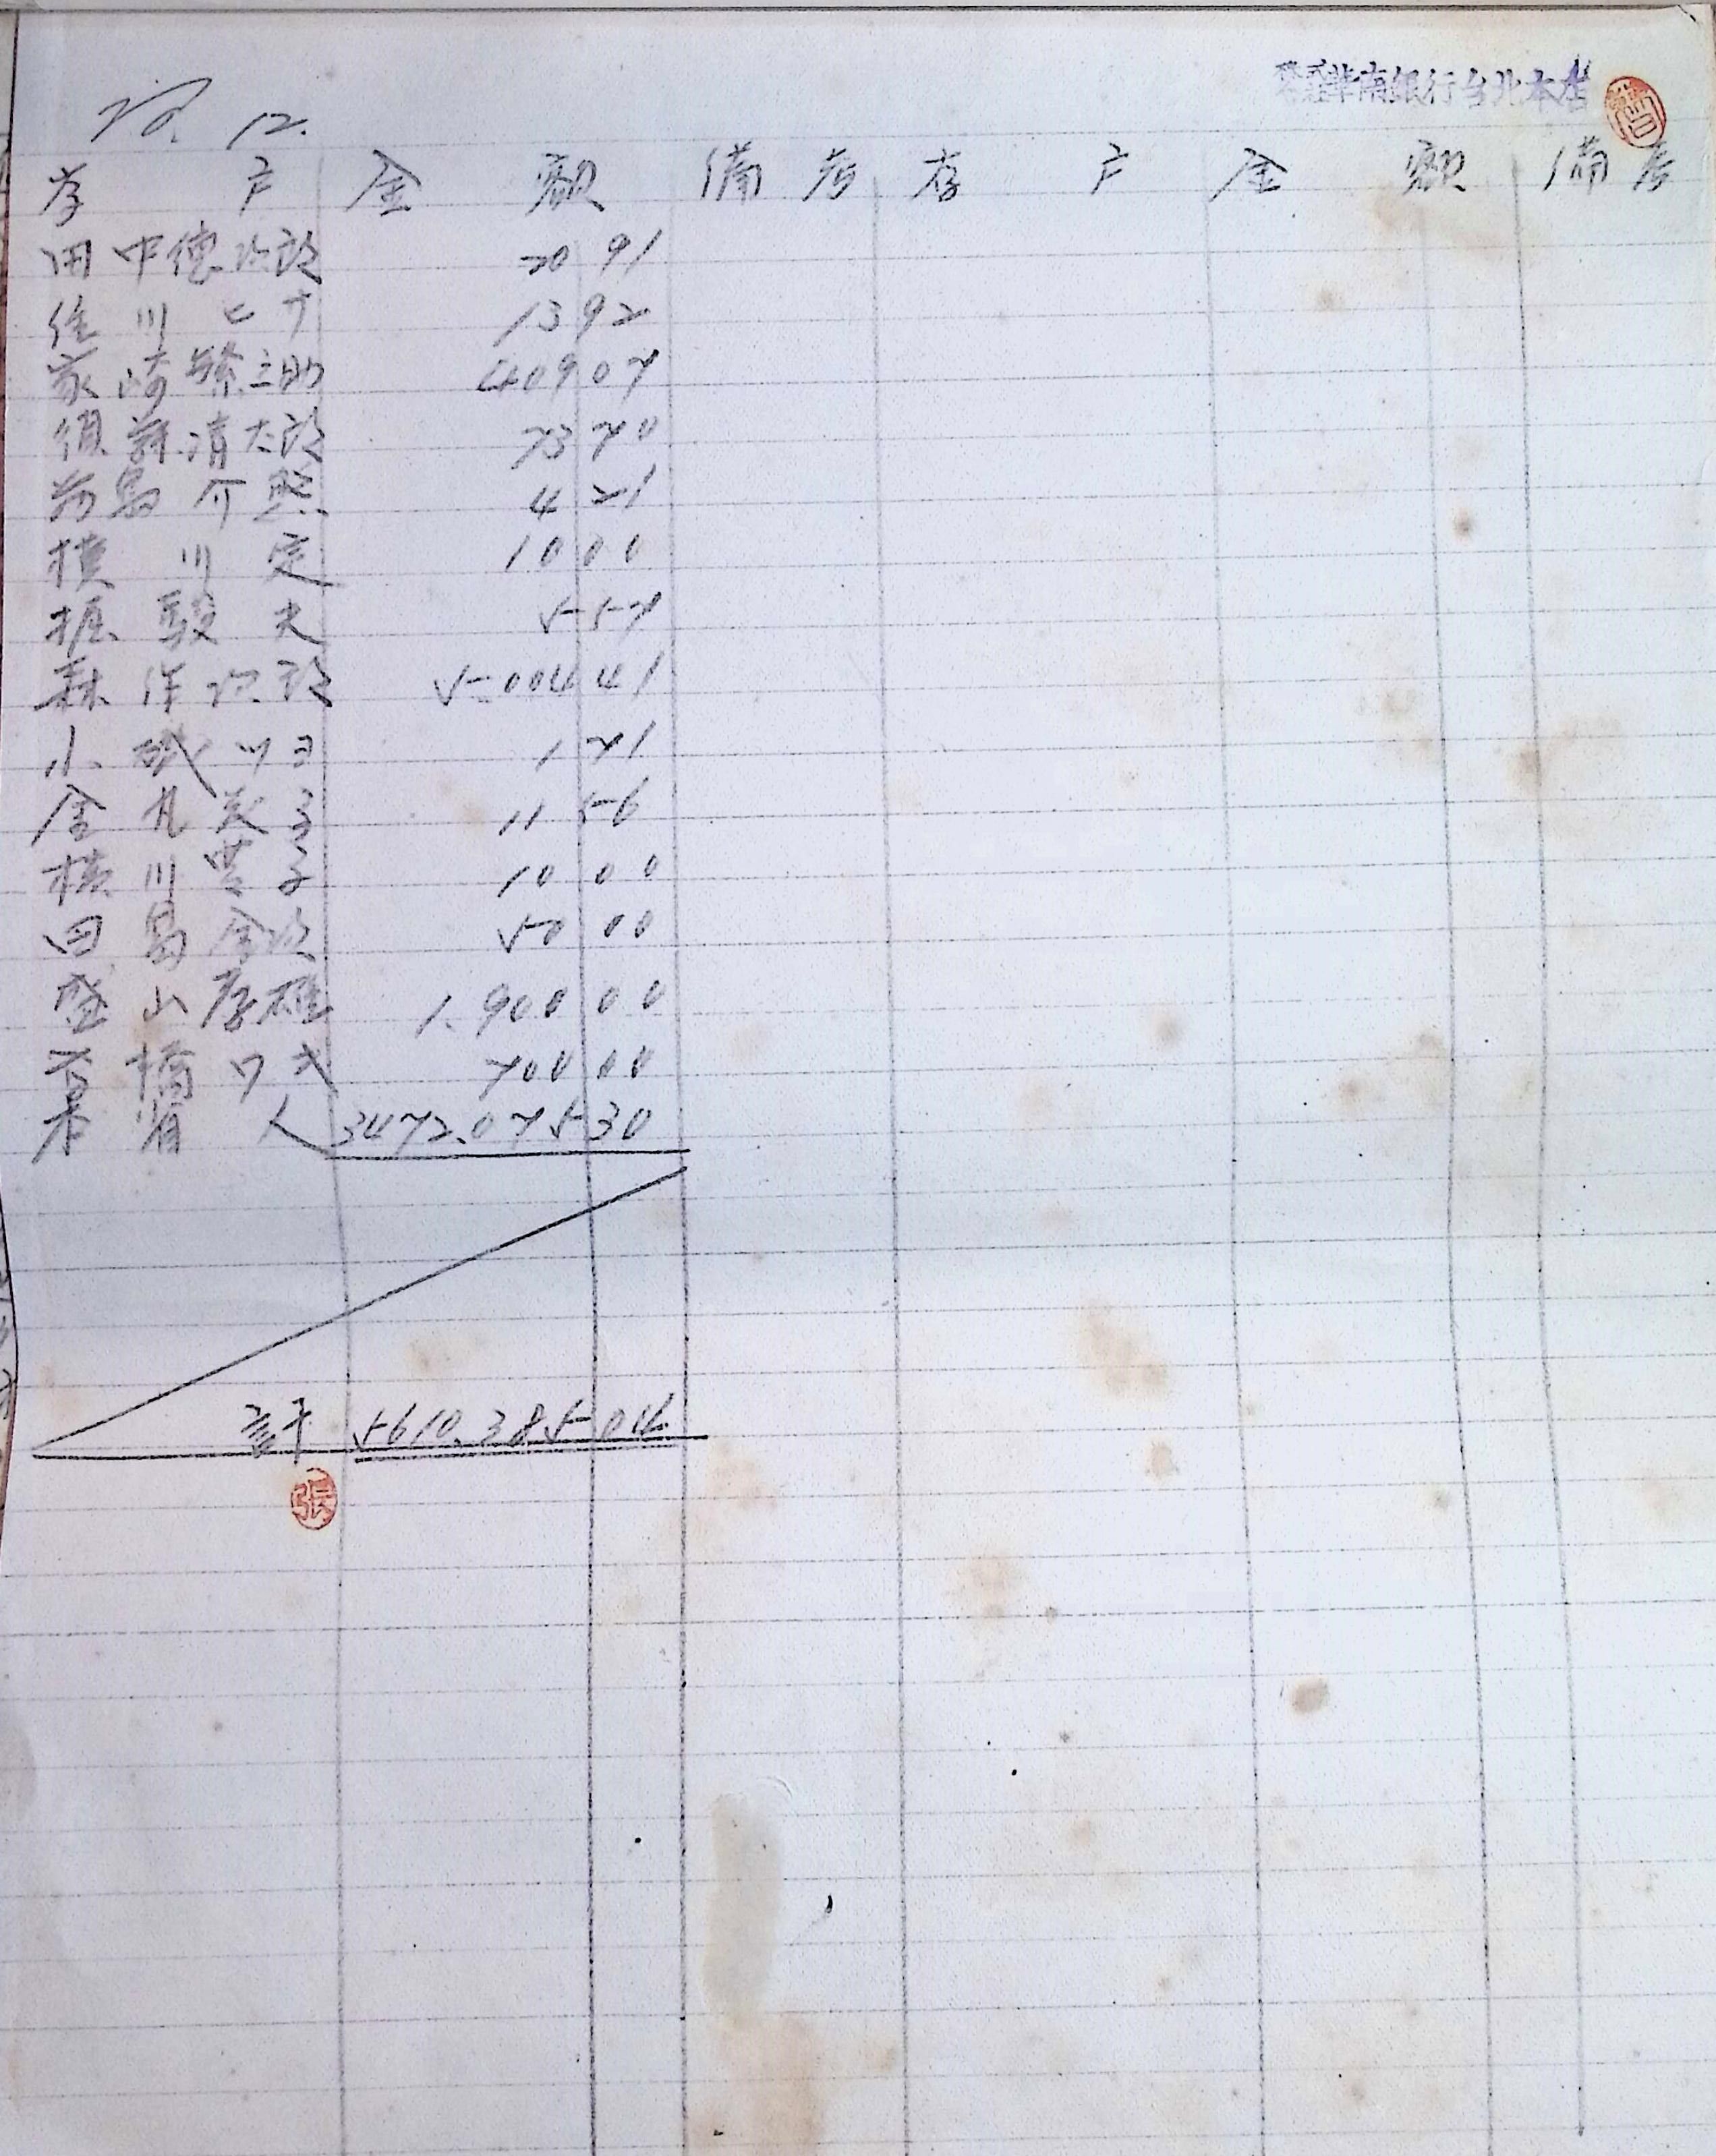 華南銀行台北本店
No. 12.
存戶 金額 備考 存戶 金額 備考
田中德次郎 20 91
佳川ヒナ 13 92
家崎 三助 409 07
須 清太郎 73 70
島介照 4 21
横川定 10 00
堀駿夫 5 57
森洋次郎 5.004 41
小磯ツヨ 1 71
金 美子 11 56
横川豊子 10 00
田島金次 50 00
盛山孝雄 1.900 00
高橋ワキ 700 00
本省人 3472.075 30
計 5610.385 04
張